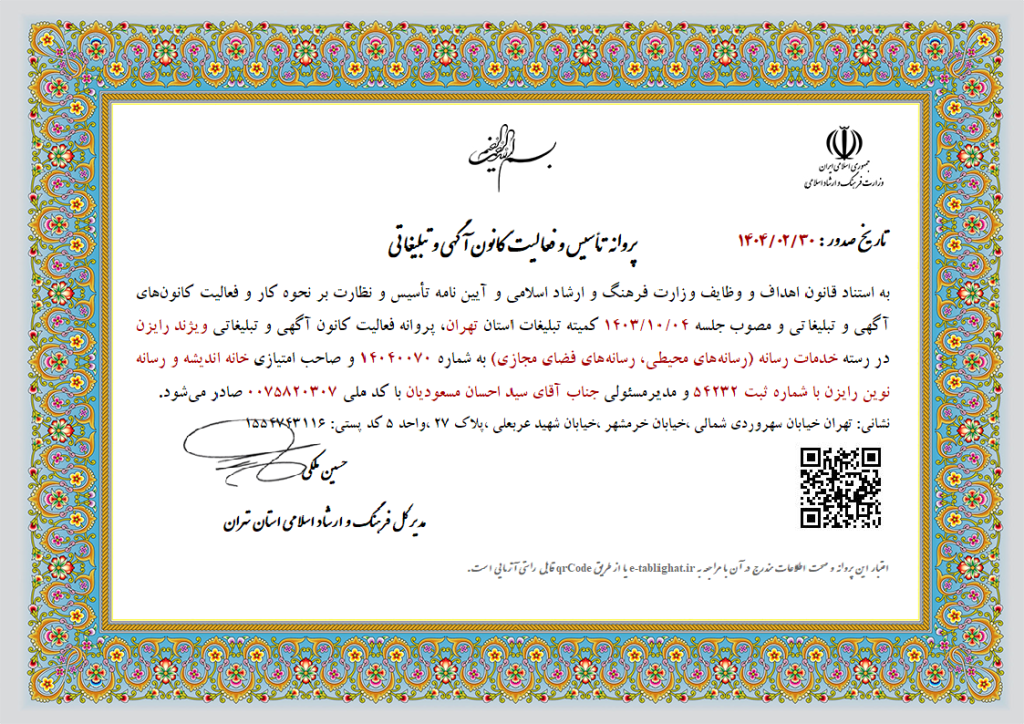 بسم الله الرحمن الرحیم
جمهوری اسلامی ایران
وزارت فرهنگ و ارشاد اسلامی
تاریخ صدور : ۱۴۰۴/۰۲/۳۰
پروانه تأسیس و فعالیت کانون آگهی و تبلیغاتی
به استناد قانون اهداف و وظایف وزارت فرهنگ و ارشاد اسلامی و آیین نامه تأسیس و نظارت بر نحوه کار و فعالیت کانون‌های
آگهی و تبلیغاتی و مصوب جلسه ۱۴۰۳/۱۰/۰۴ کمیته تبلیغات استان تهران، پروانه فعالیت کانون آگهی و تبلیغاتی ویژند رایزن
در رسته خدمات رسانه (رسانه‌های محیطی، رسانه‌های فضای مجازی) به شماره ۱۴۰۴۰۰۷۰ و صاحب امتیازی خانه اندیشه و رسانه
نوین رایزن با شماره ثبت ۵۴۲۳۲ و مدیرمسئولی جناب آقای سید احسان مسعودیان با کد ملی ۰۰۷۵۸۲۰۳۰۷ صادر می‌شود.
نشانی: تهران خیابان سهروردی شمالی ،خیابان خرمشهر ،خیابان شهید عربعلی ،پلاک ۲۷ ،واحد ۵ کد پستی: ۱۵۵۴۷۴۳۱۱۶
حسین ملکی
مدیر کل فرهنگ و ارشاد اسلامی استان تهران
اعتبار این پروانه و صحت اطلاعات مندرج در آن با مراجعه به e-tablighat.ir یا از طریق qrCode قابل راستی آزمایی است.